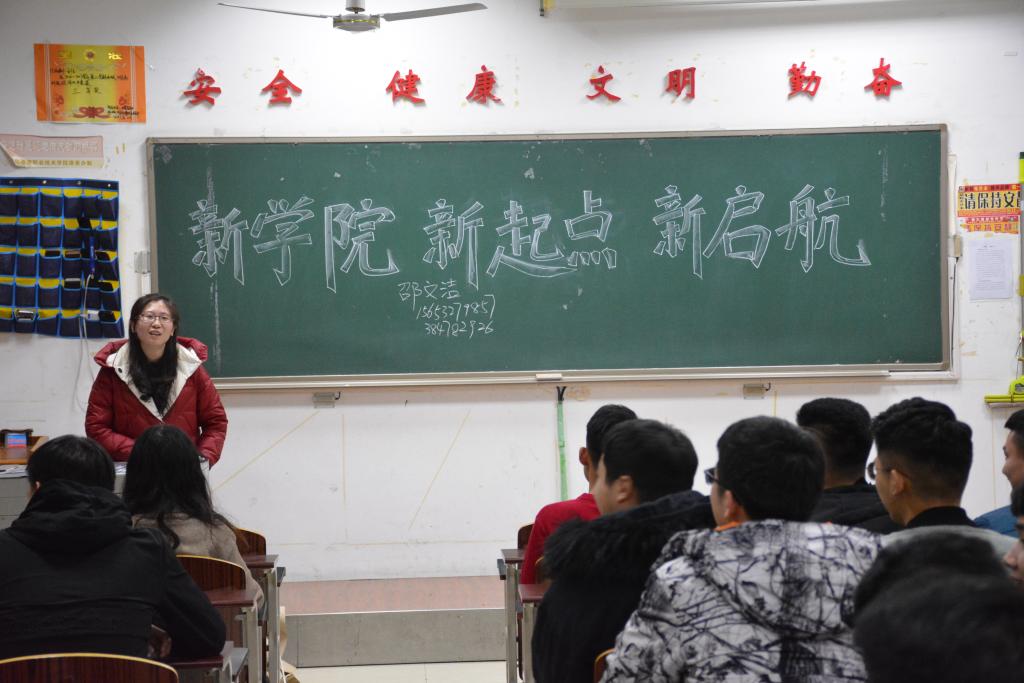 安全 健康 文明 勤奋
新学院 新起点 新启航
邵文洁
15653279857
384782926
请保持文